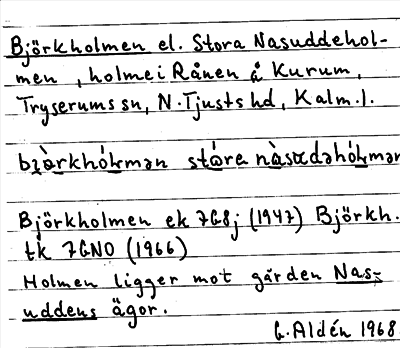 Björkholmen el. Stora Nasuddehol-
men, holme i Rånen å Kurum,
Tryserums sn, N. Tjusts hd, Kalm. l.
bjò̤rkhól̤mən stóra nàsudəhól̤mən
Björkholmen ek 7G8j (1947) Björkh.
tk 7GNO (1966)
Holmen ligger mot gården Nas-
uddens ägor.
G. Aldén 1968